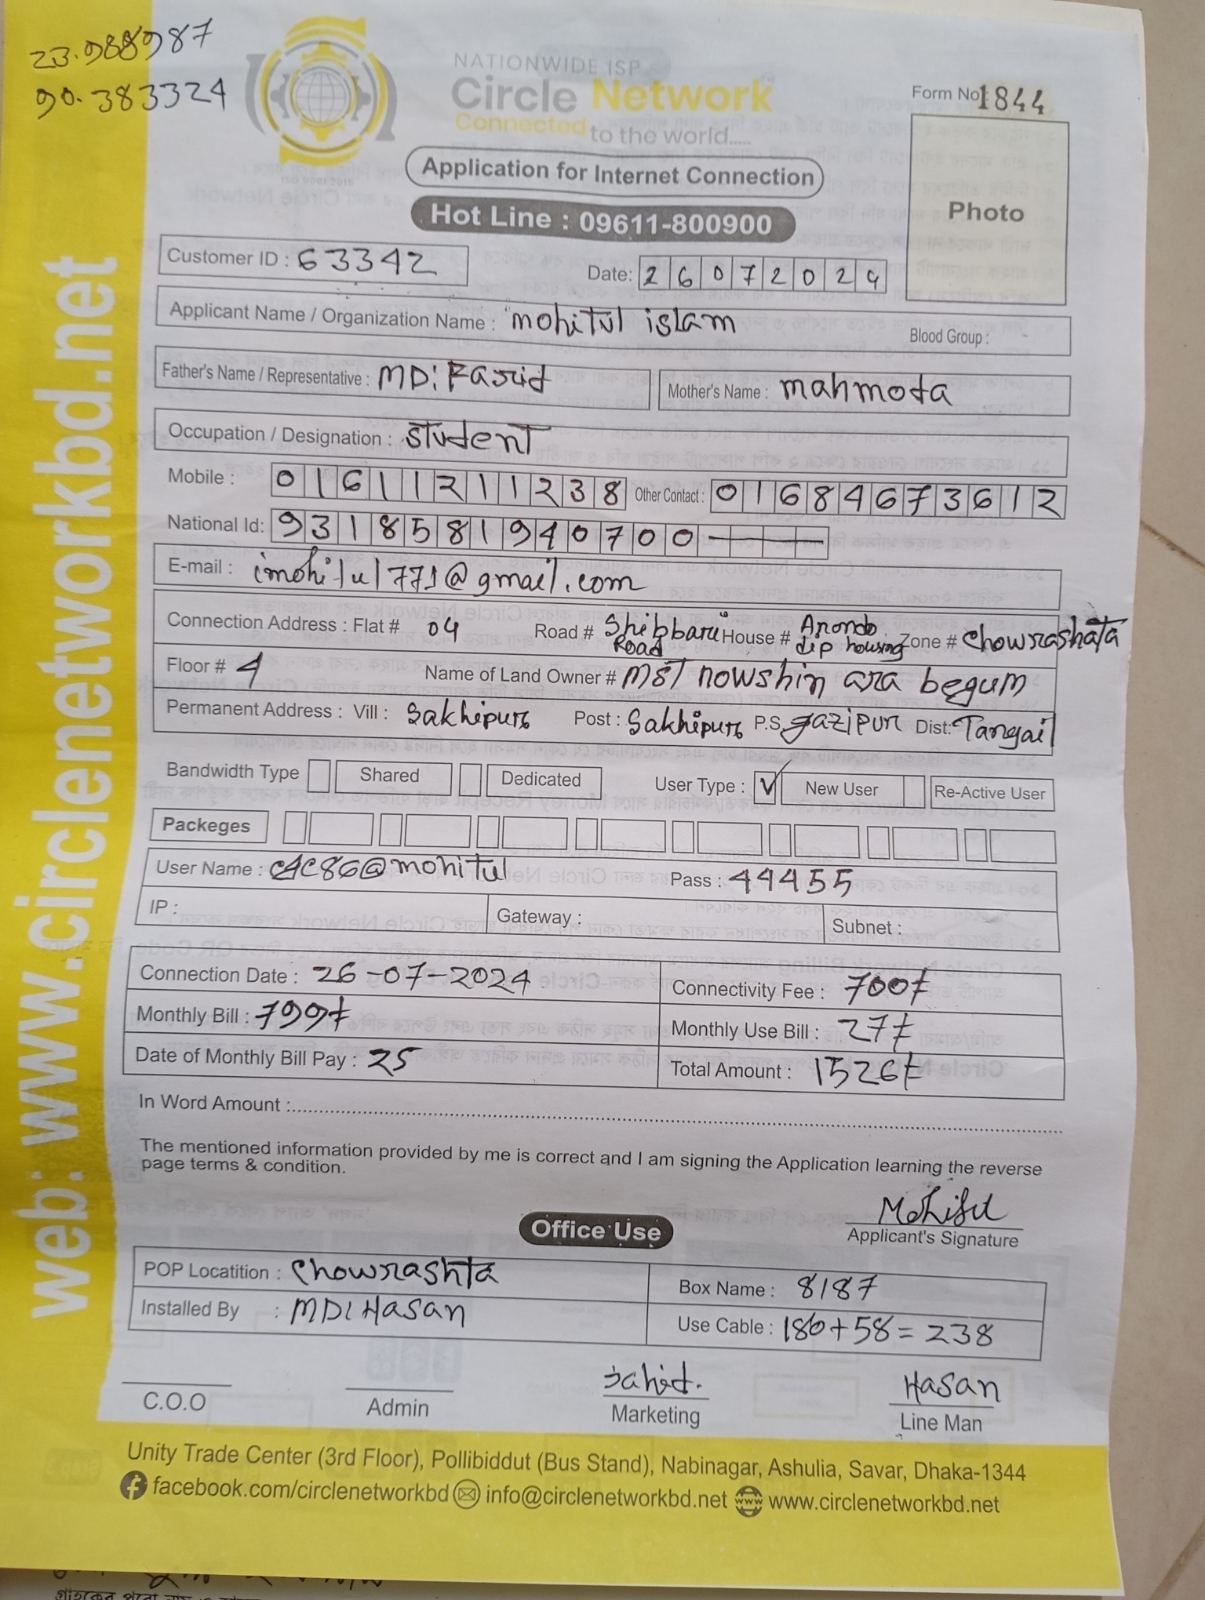 23.988987
90.383324
NATIONWIDE ISP
Circle Network
Connected to the world.....
ISO 9001:2015
Form No 1844
Application for Internet Connection
Photo
Hot Line : 09611-800900
Customer ID : 63342
Date: 26072024
Applicant Name / Organization Name : mohitul islam
Blood Group :
Father's Name / Representative : MD: Farid
Mother's Name : mahmoda
Occupation / Designation : student
Mobile : 01611211238 Other Contact : 01684673612
National Id: 9318581940700
E-mail : imohitul771@gmail.com
Connection Address : Flat # 04 Road # Shibbari Road House # Anondo dip housing Zone # Chowrashata
Floor # 4 Name of Land Owner # MST nowshin ara begum
Permanent Address : Vill : Sakhipur Post : Sakhipur P.S gazipur Dist: Tangail
Bandwidth Type Shared Dedicated User Type : ✓ New User Re-Active User
Packeges
User Name : CAC86@mohitul Pass : 44455
IP : Gateway : Subnet :
Connection Date : 26-07-2024 Connectivity Fee : 700৳
Monthly Bill : 799৳ Monthly Use Bill : 27৳
Date of Monthly Bill Pay : 25 Total Amount : 1526৳
In Word Amount :
The mentioned information provided by me is correct and I am signing the Application learning the reverse
page terms & condition.
Mohitul
Applicant's Signature
Office Use
POP Locatition : Chowrashta Box Name : 8187
Installed By : MD: Hasan Use Cable : 180+58=238
Jahid. Hasan
C.O.O Admin Marketing Line Man
Unity Trade Center (3rd Floor), Pollibiddut (Bus Stand), Nabinagar, Ashulia, Savar, Dhaka-1344
facebook.com/circlenetworkbd info@circlenetworkbd.net www.circlenetworkbd.net
web: www.circlenetworkbd.net